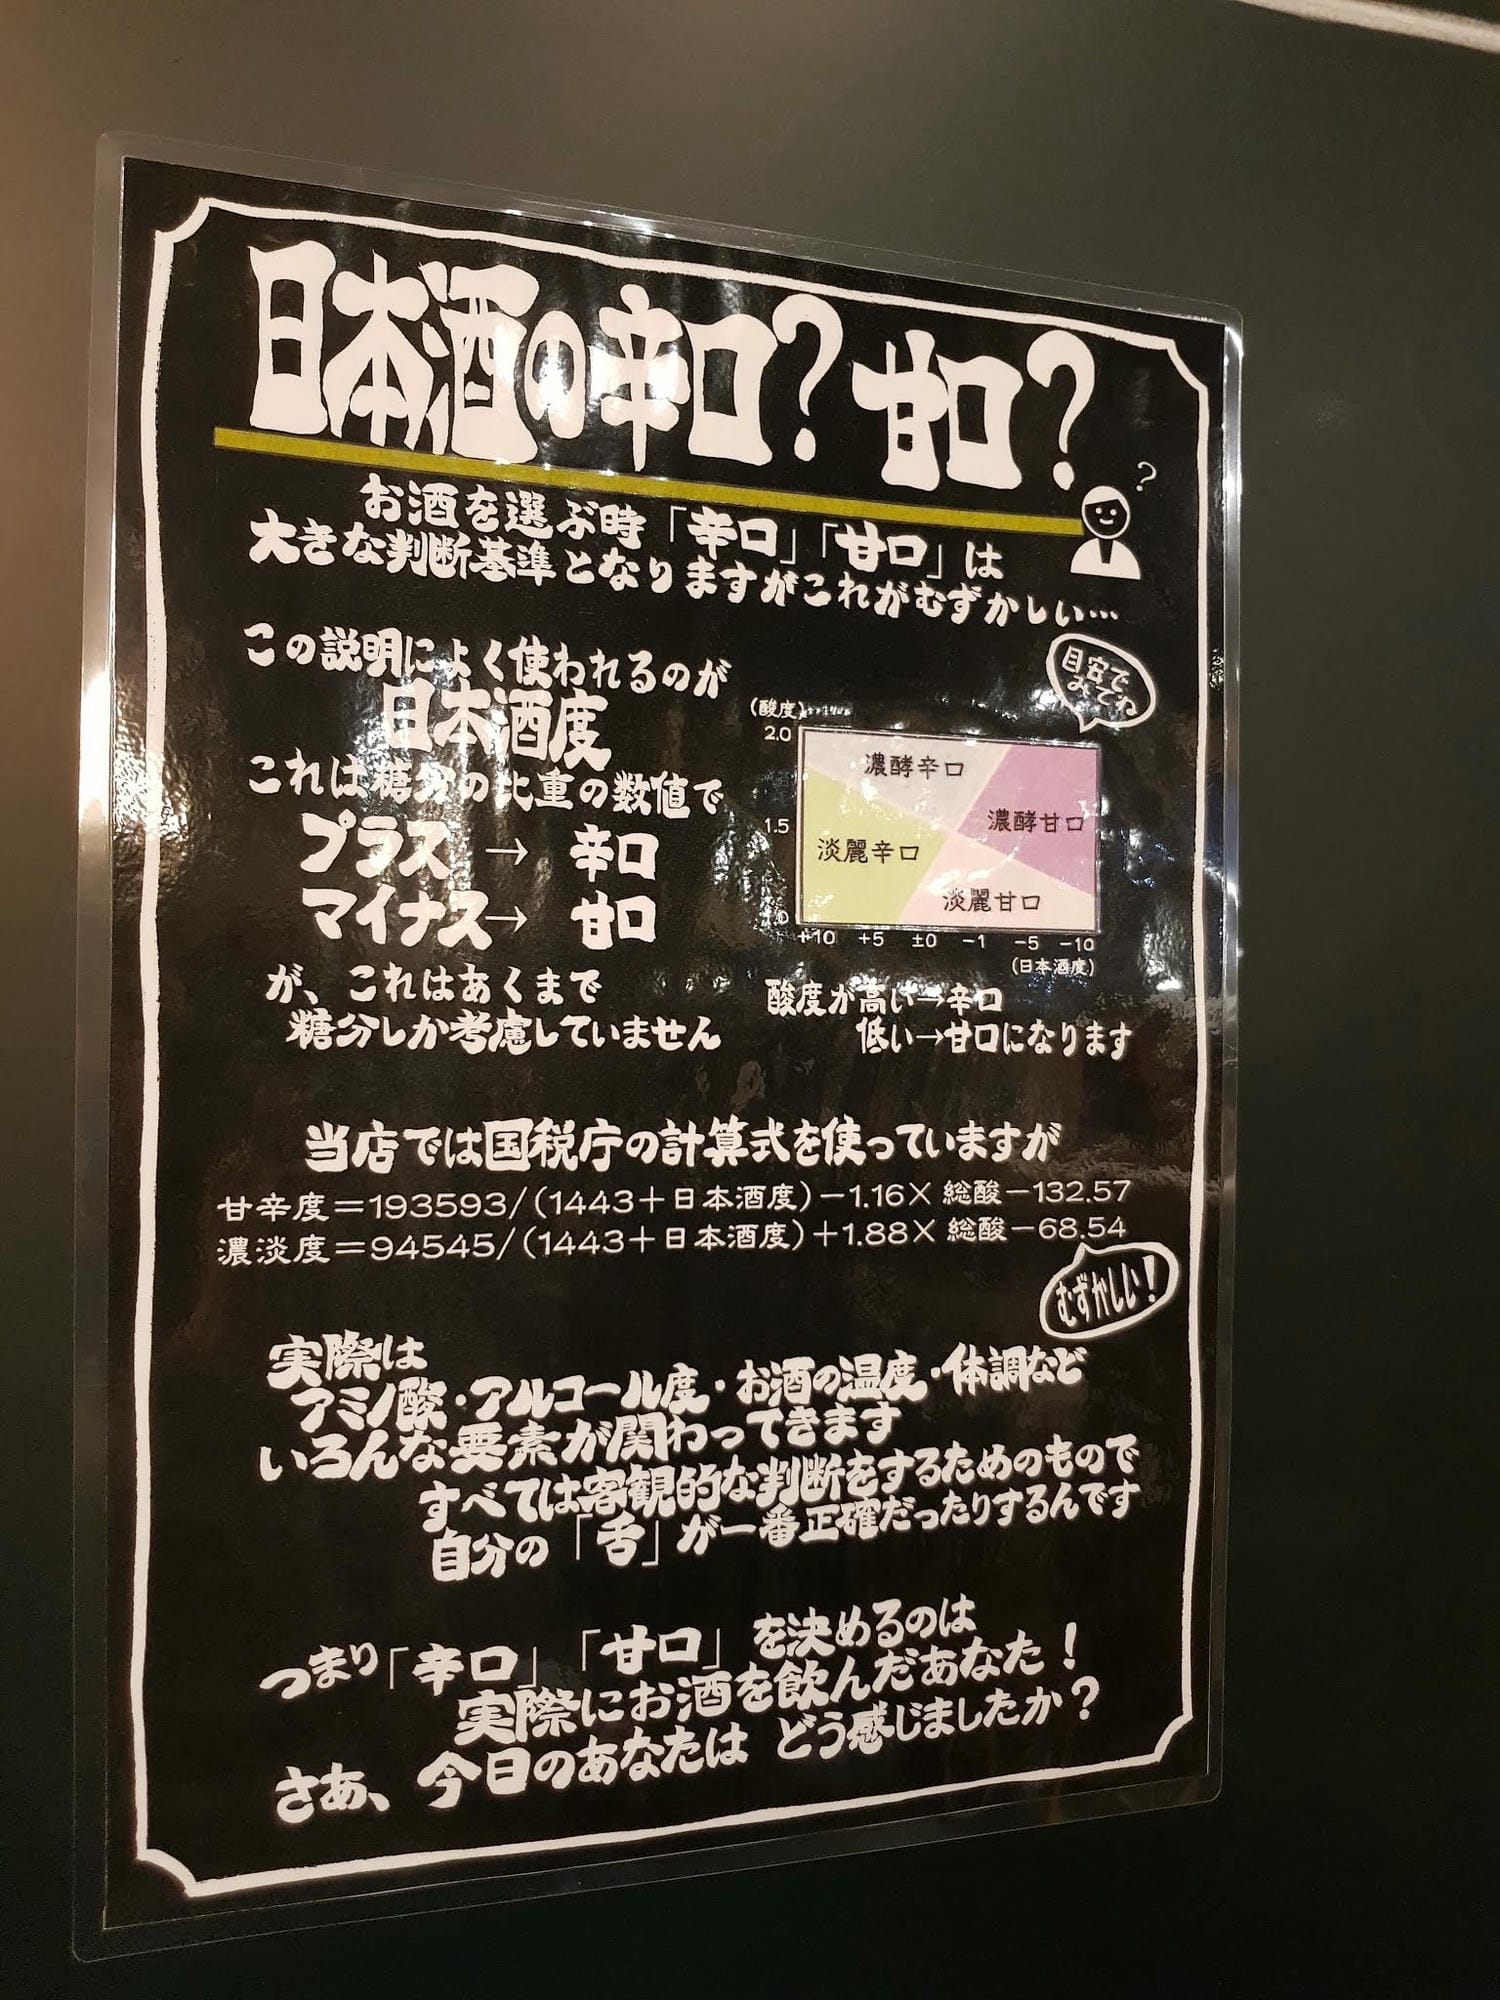 日本酒の辛口?甘口?
?
お酒を選ぶ時「辛口」「甘口」は
大きな判断基準となりますがこれがむずかしい…
この説明によく使われるのが
日本酒度
これは糖分の比重の数値で
プラス→ 辛口
マイナス→ 甘口
が、これはあくまで
糖分しか考慮していません
目安で
みてね
(酸度)
2.0
1.5
濃醇辛口
濃醇甘口
淡麗辛口
淡麗甘口
+10 +5 ±0 −1 −5 −10
(日本酒度)
酸度が高い→辛口
低い→甘口になります
当店では国税庁の計算式を使っていますが
甘辛度=193593/(1443+日本酒度)−1.16×総酸−132.57
濃淡度=94545/(1443+日本酒度)+1.88×総酸−68.54
むずかしい!
実際は
アミノ酸・アルコール度・お酒の温度・体調など
いろんな要素が関わってきます
すべては客観的な判断をするためのもので
自分の「舌」が一番正確だったりするんです
つまり「辛口」「甘口」を決めるのは
実際にお酒を飲んだあなた!
さあ、今日のあなたは どう感じましたか?